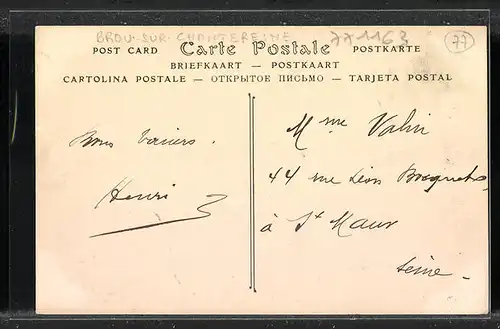 BROU-SUR-CHANTEREINE 771163
77
POST CARD Carte Postale POSTKARTE
BRIEFKAART — POSTKAART
CARTOLINA POSTALE — ОТКРЫТОЕ ПИСЬМО — TARJETA POSTAL
Bons baisers.
Henri
Mme Valin
44 rue Léon Bocquet,
à St Maur
Seine -